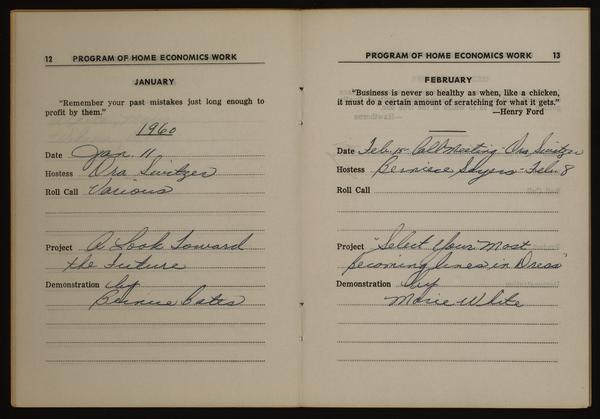 12 PROGRAM OF HOME ECONOMICS WORK
JANUARY
"Remember your past mistakes just long enough to
profit by them."
1960
Date Jan. 11
Hostess Ora Switzer
Roll Call Various
Project A Look Toward
the Future
Demonstration by
Bernice Bates
PROGRAM OF HOME ECONOMICS WORK 13
FEBRUARY
"Business is never so healthy as when, like a chicken,
it must do a certain amount of scratching for what it gets."
—Henry Ford
Date Feb. Call Meeting - Ora Switzer
Hostess Berniece Sayers - Feb. 8
Roll Call
Project "Select Your Most
Becoming Lines in Dress"
Demonstration by
Marie White